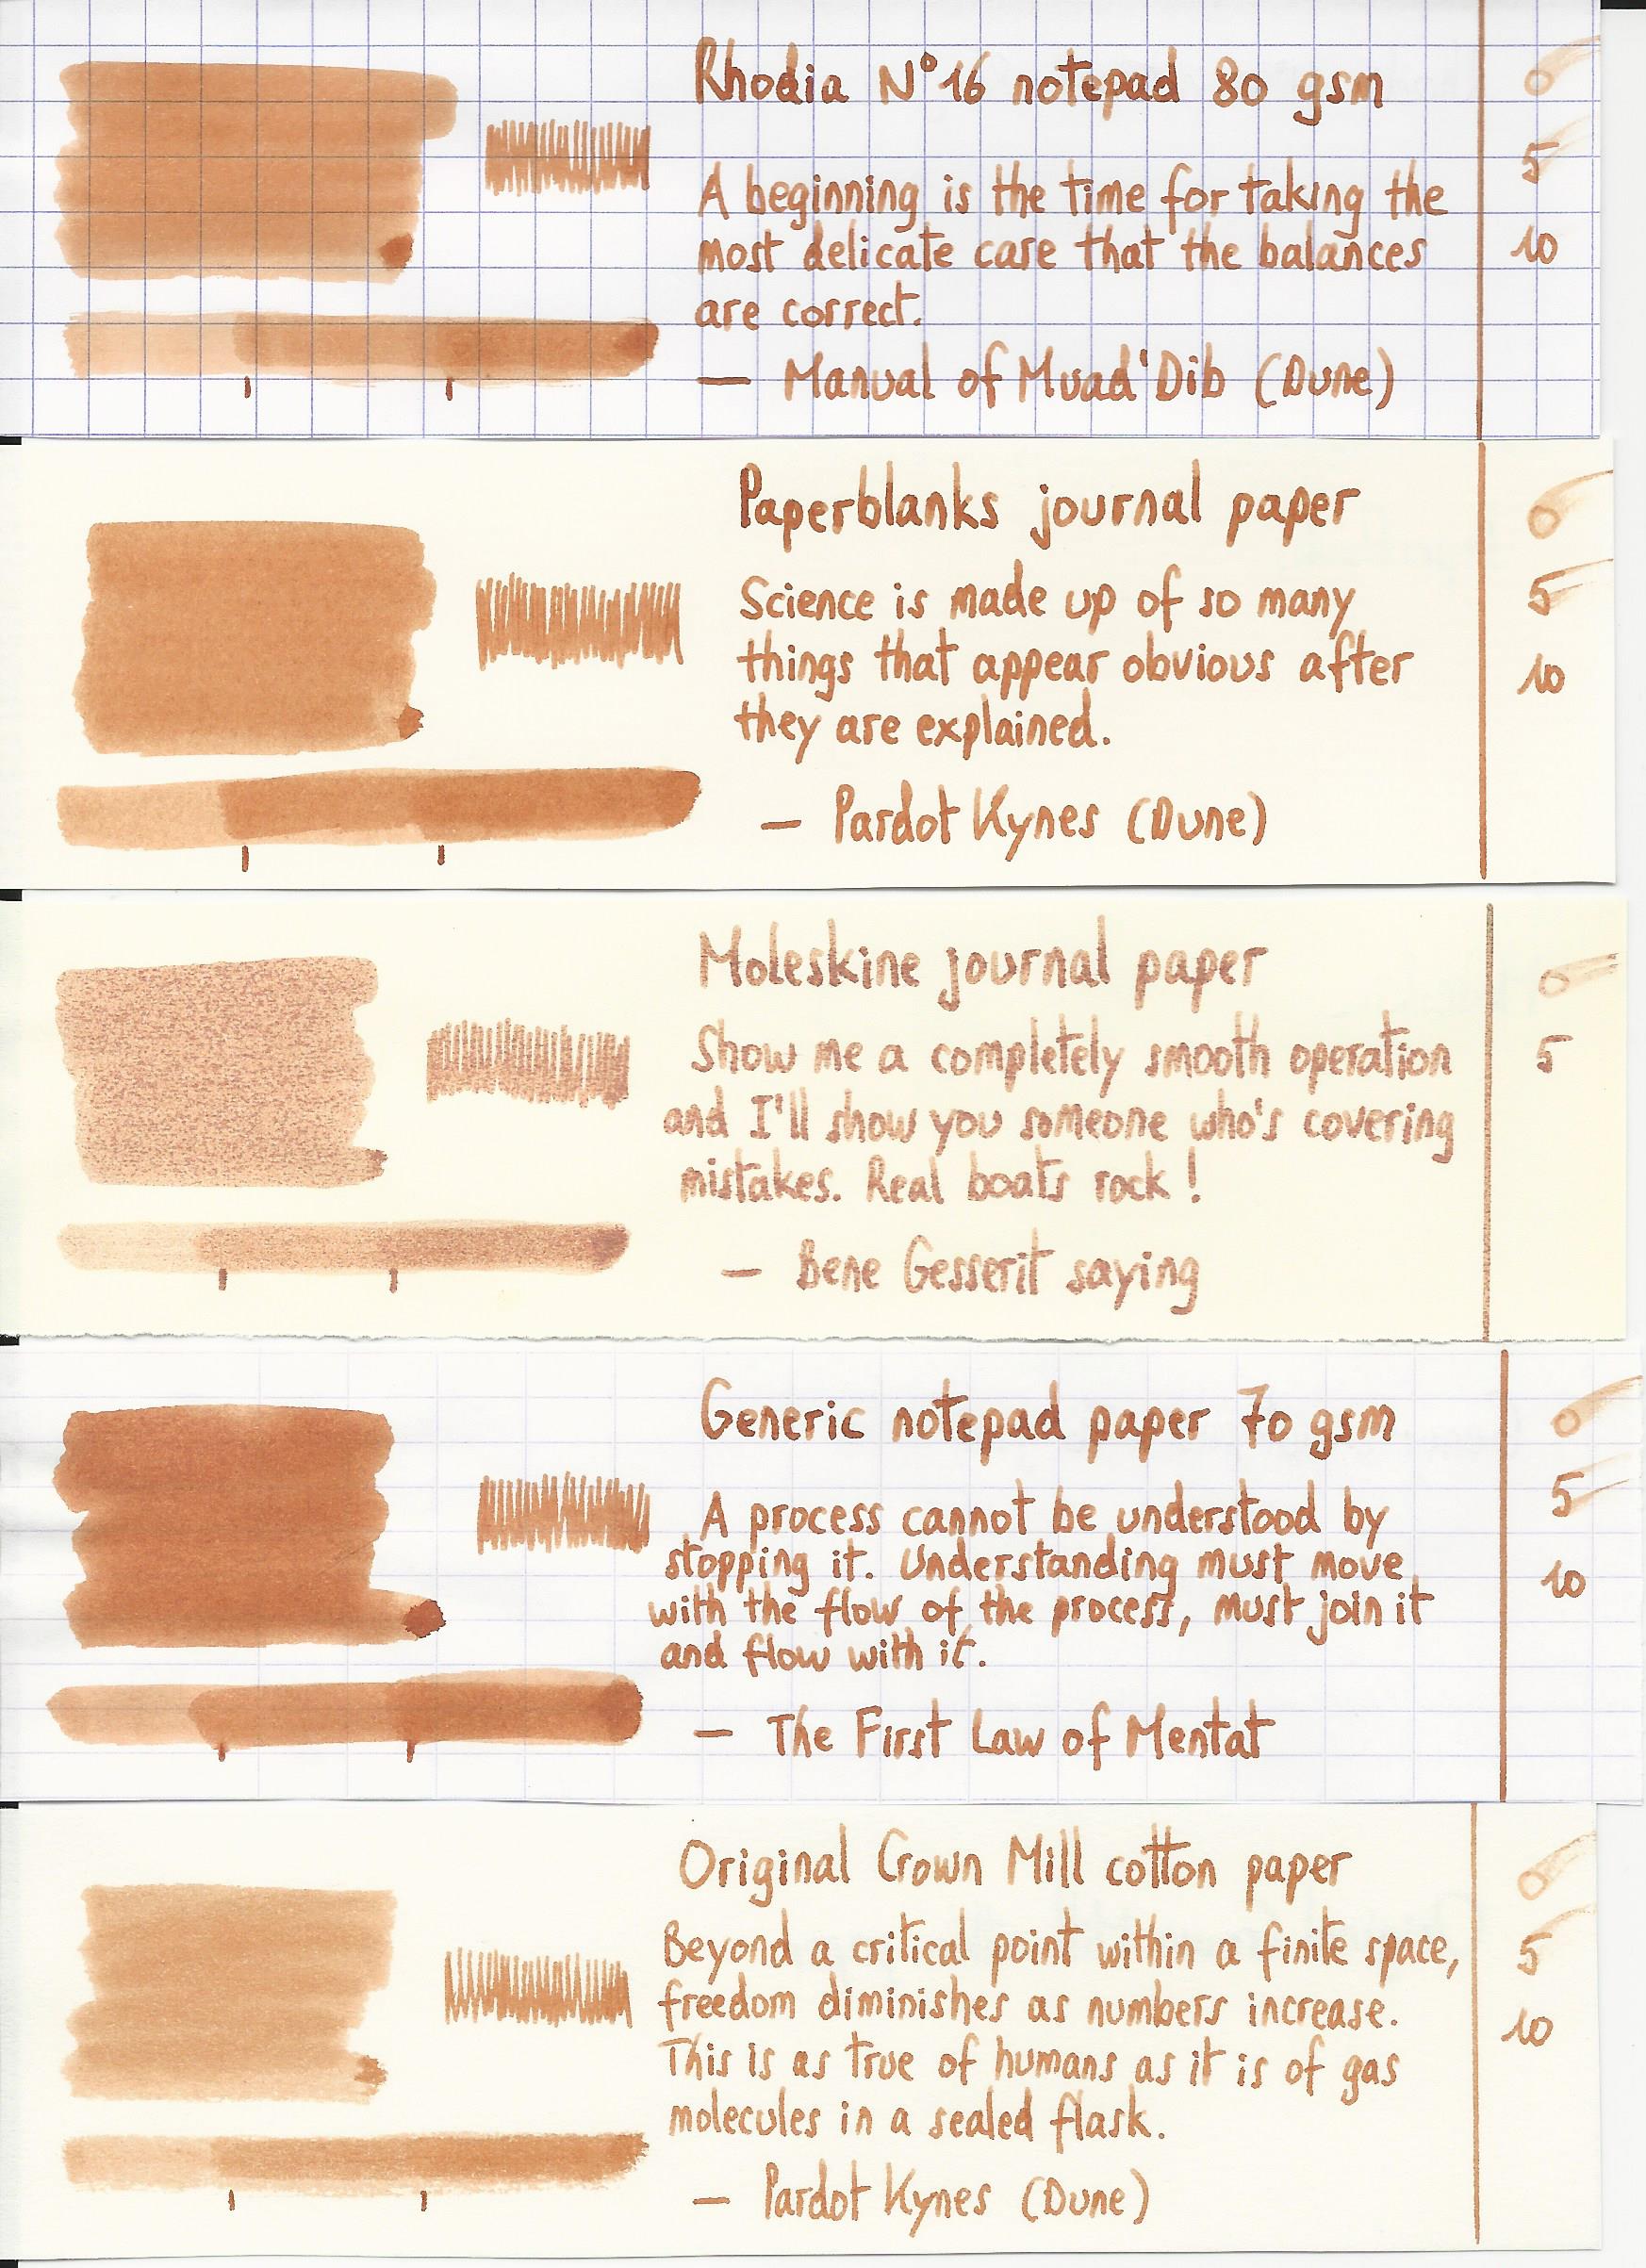 Rhodia N°16 notepad 80 gsm
A beginning is the time for taking the
most delicate care that the balances
are correct.
— Manual of Muad'Dib (Dune)
0
5
10
Paperblanks journal paper
Science is made up of so many
things that appear obvious after
they are explained.
— Pardot Kynes (Dune)
0
5
10
Moleskine journal paper
Show me a completely smooth operation
and I'll show you someone who's covering
mistakes. Real boats rock !
— Bene Gesserit saying
0
5
Generic notepad paper 70 gsm
A process cannot be understood by
stopping it. Understanding must move
with the flow of the process, must join it
and flow with it.
— The First Law of Mentat
0
5
10
Original Crown Mill cotton paper
Beyond a critical point within a finite space,
freedom diminishes as numbers increase.
This is as true of humans as it is of gas
molecules in a sealed flask.
— Pardot Kynes (Dune)
0
5
10